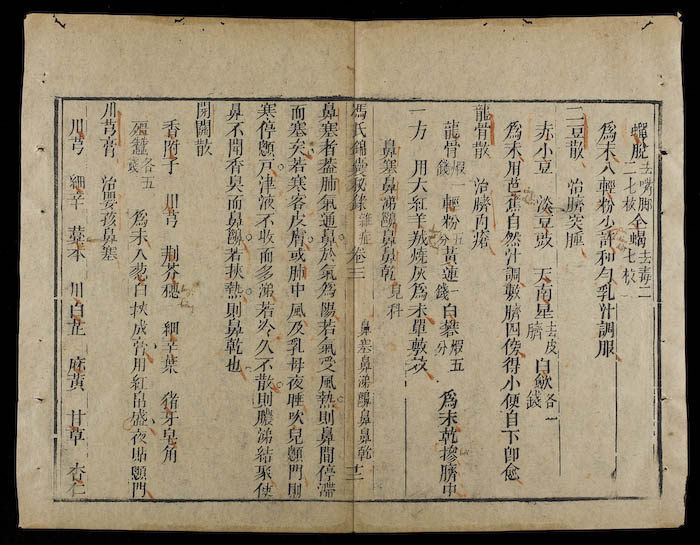 蟬脫去嘴脚二七枚全蝎去毒二七枚
為末入輕粉少許和勻乳汁調服
二豆散 治臍突腫
赤小豆 淡豆豉 天南星去皮臍 白歛各一錢
為末用芭蕉自然汁調敷臍四傍得小便自下即愈
龍骨散 治臍內瘡
龍骨煆一錢 輕粉五分 黃連一錢 白礬煆五分 為末乾摻臍中
一方 用大紅羊羢燒灰為末單敷效
鼻塞鼻涕鼻鼻乾 兒科
馮氏錦囊秘錄 雜症 卷三 鼻塞鼻涕鼻鼻乾 十二
鼻塞者蓋肺氣通鼻於氣為陽若氣受風熱則鼻間停滯
而塞矣若寒客皮膚或肺中風及乳母夜睡吹兒顖門則
寒停顖戶津液不收而多涕若冷久不散則膿涕結聚使
鼻不聞香臭而鼻若挾熱則鼻乾也
開關散
香附子 川芎 荆芥穗 細辛葉 猪牙皂角
殭蠶各五錢 為末入葱白挾成膏用紅帛盛夜貼顖門
川芎膏 治嬰孩鼻塞
川芎 細辛 藁本 川白芷 麻黃 甘草 杏仁